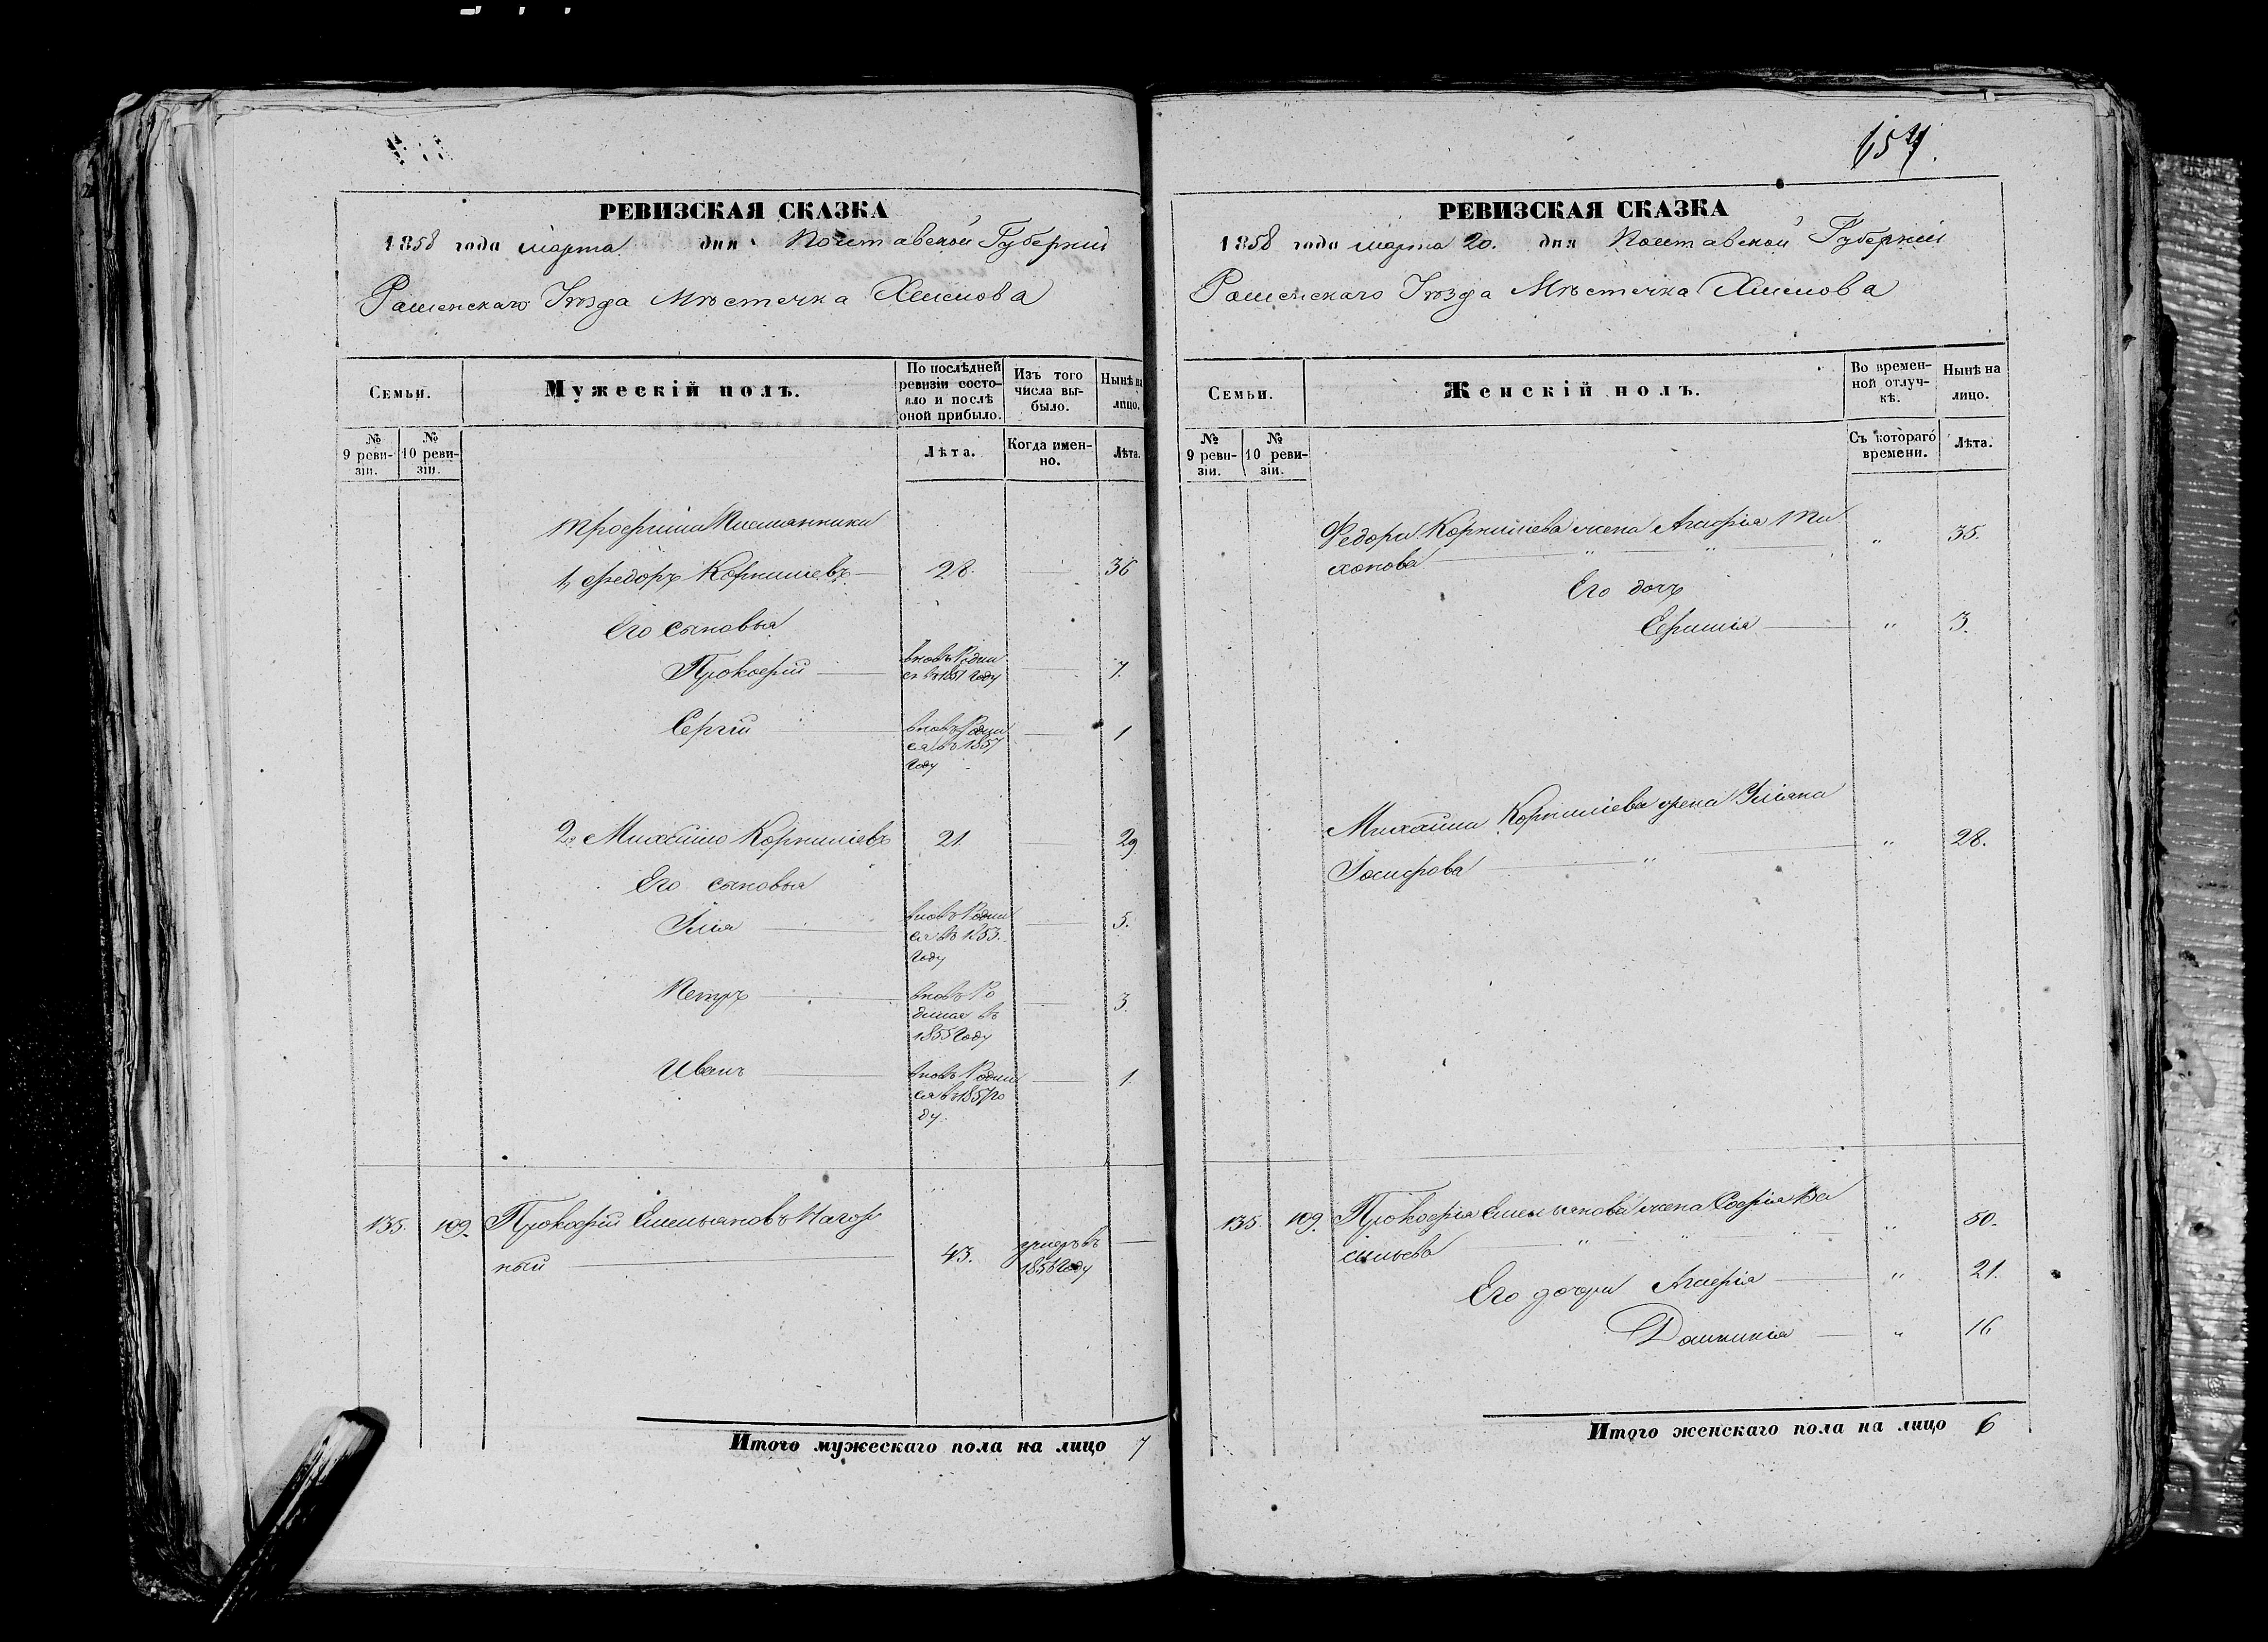 РЕВИЗСКАЯ СКАЗКА
1858 года марта дня Полтавской Губернiи
Роменскаго Уѣзда Мѣстечка Хмелова
Семьи.
Мужескiй полъ.
По послѣдней ревизiи состояло и послѣ оной прибыло.
Изъ того числа выбыло.
Нынѣ на лицо.
№ 9 ревизiи.
№ 10 ревизiи.
Лѣта.
Когда именно.
Лѣта.
Трофима Племянники
1, Федоръ Корнилiевъ 28. 36
Его сыновья
Прокофiй вновь Роди
ся въ 1851 Году 7.
Сергiй вновь Роди
ся въ 1857
Году 1
2, Михайло Корнилiевъ 21. 29
Его сыновья
Илiя вновь Роди
ся въ 1853.
Году 5.
Петръ вновь Ро
дился въ
1855 Году 3.
Иванъ вновь Роди
ся въ 1857 Го
ду. 1.
135. 109. Прокофiй Емельяновъ Нагор
ный 43. умеръ въ
1856 Году
Итого мужескаго пола на лицо 7
654.
РЕВИЗСКАЯ СКАЗКА
1858 года марта 20. дня Полтавской Губернiи
Роменскаго Уѣзда Мѣстечка Хмелова
Семьи.
Женскiй полъ.
Во временной отлучкѣ.
Нынѣ на лицо.
№ 9 ревизiи.
№ 10 ревизiи.
Съ котораго времени.
Лѣта.
Федора Корнилiева жена Агафiя Ти
хонова " " " 35.
Его дочь
Ефимiя " 3.
Михайла Корнилiева жена Улiяна
Iосифова " " 28.
135. 109. Прокофiя Емельянова жена Софiя Ва
сильева " " " " 50.
Его дочери Агафiя " 21.
Домникiя " 16
Итого женскаго пола на лицо 6